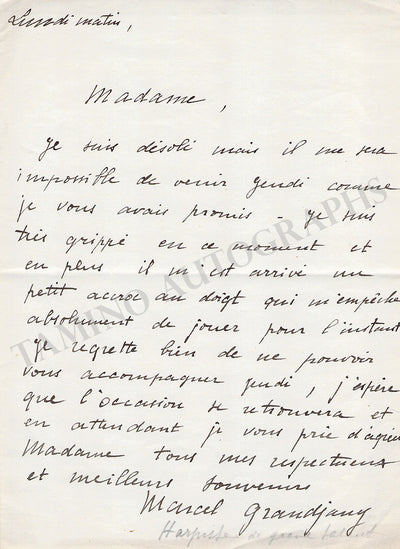 Lundi matin,
Madame,
Je suis désolé mais il me sera
impossible de venir Jeudi comme
je vous avais promis - Je suis
très grippé en ce moment et
en plus il m'est arrivé un
petit accroc au doigt qui m'empêche
absolument de jouer pour l'instant
Je regrette bien de ne pouvoir
vous accompagner jeudi, j'espère
que l'occasion se retrouvera et
en attendant je vous prie d'agréer
Madame tous mes respectueux
et meilleurs souvenirs
Marcel Grandjany
Harpiste de grand talent
TAMINO AUTOGRAPHS